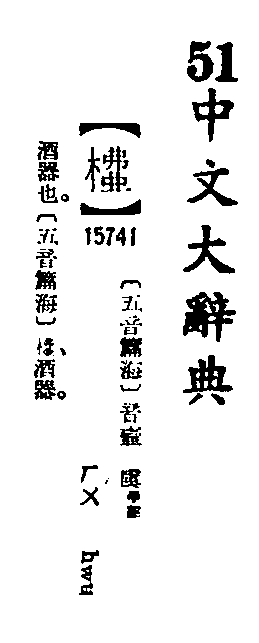 51
中文大辭典
【】
15741
〔五音篇海〕音壺
ㄏㄨˊ hwu
酒器也。〔五音篇海〕、酒器。